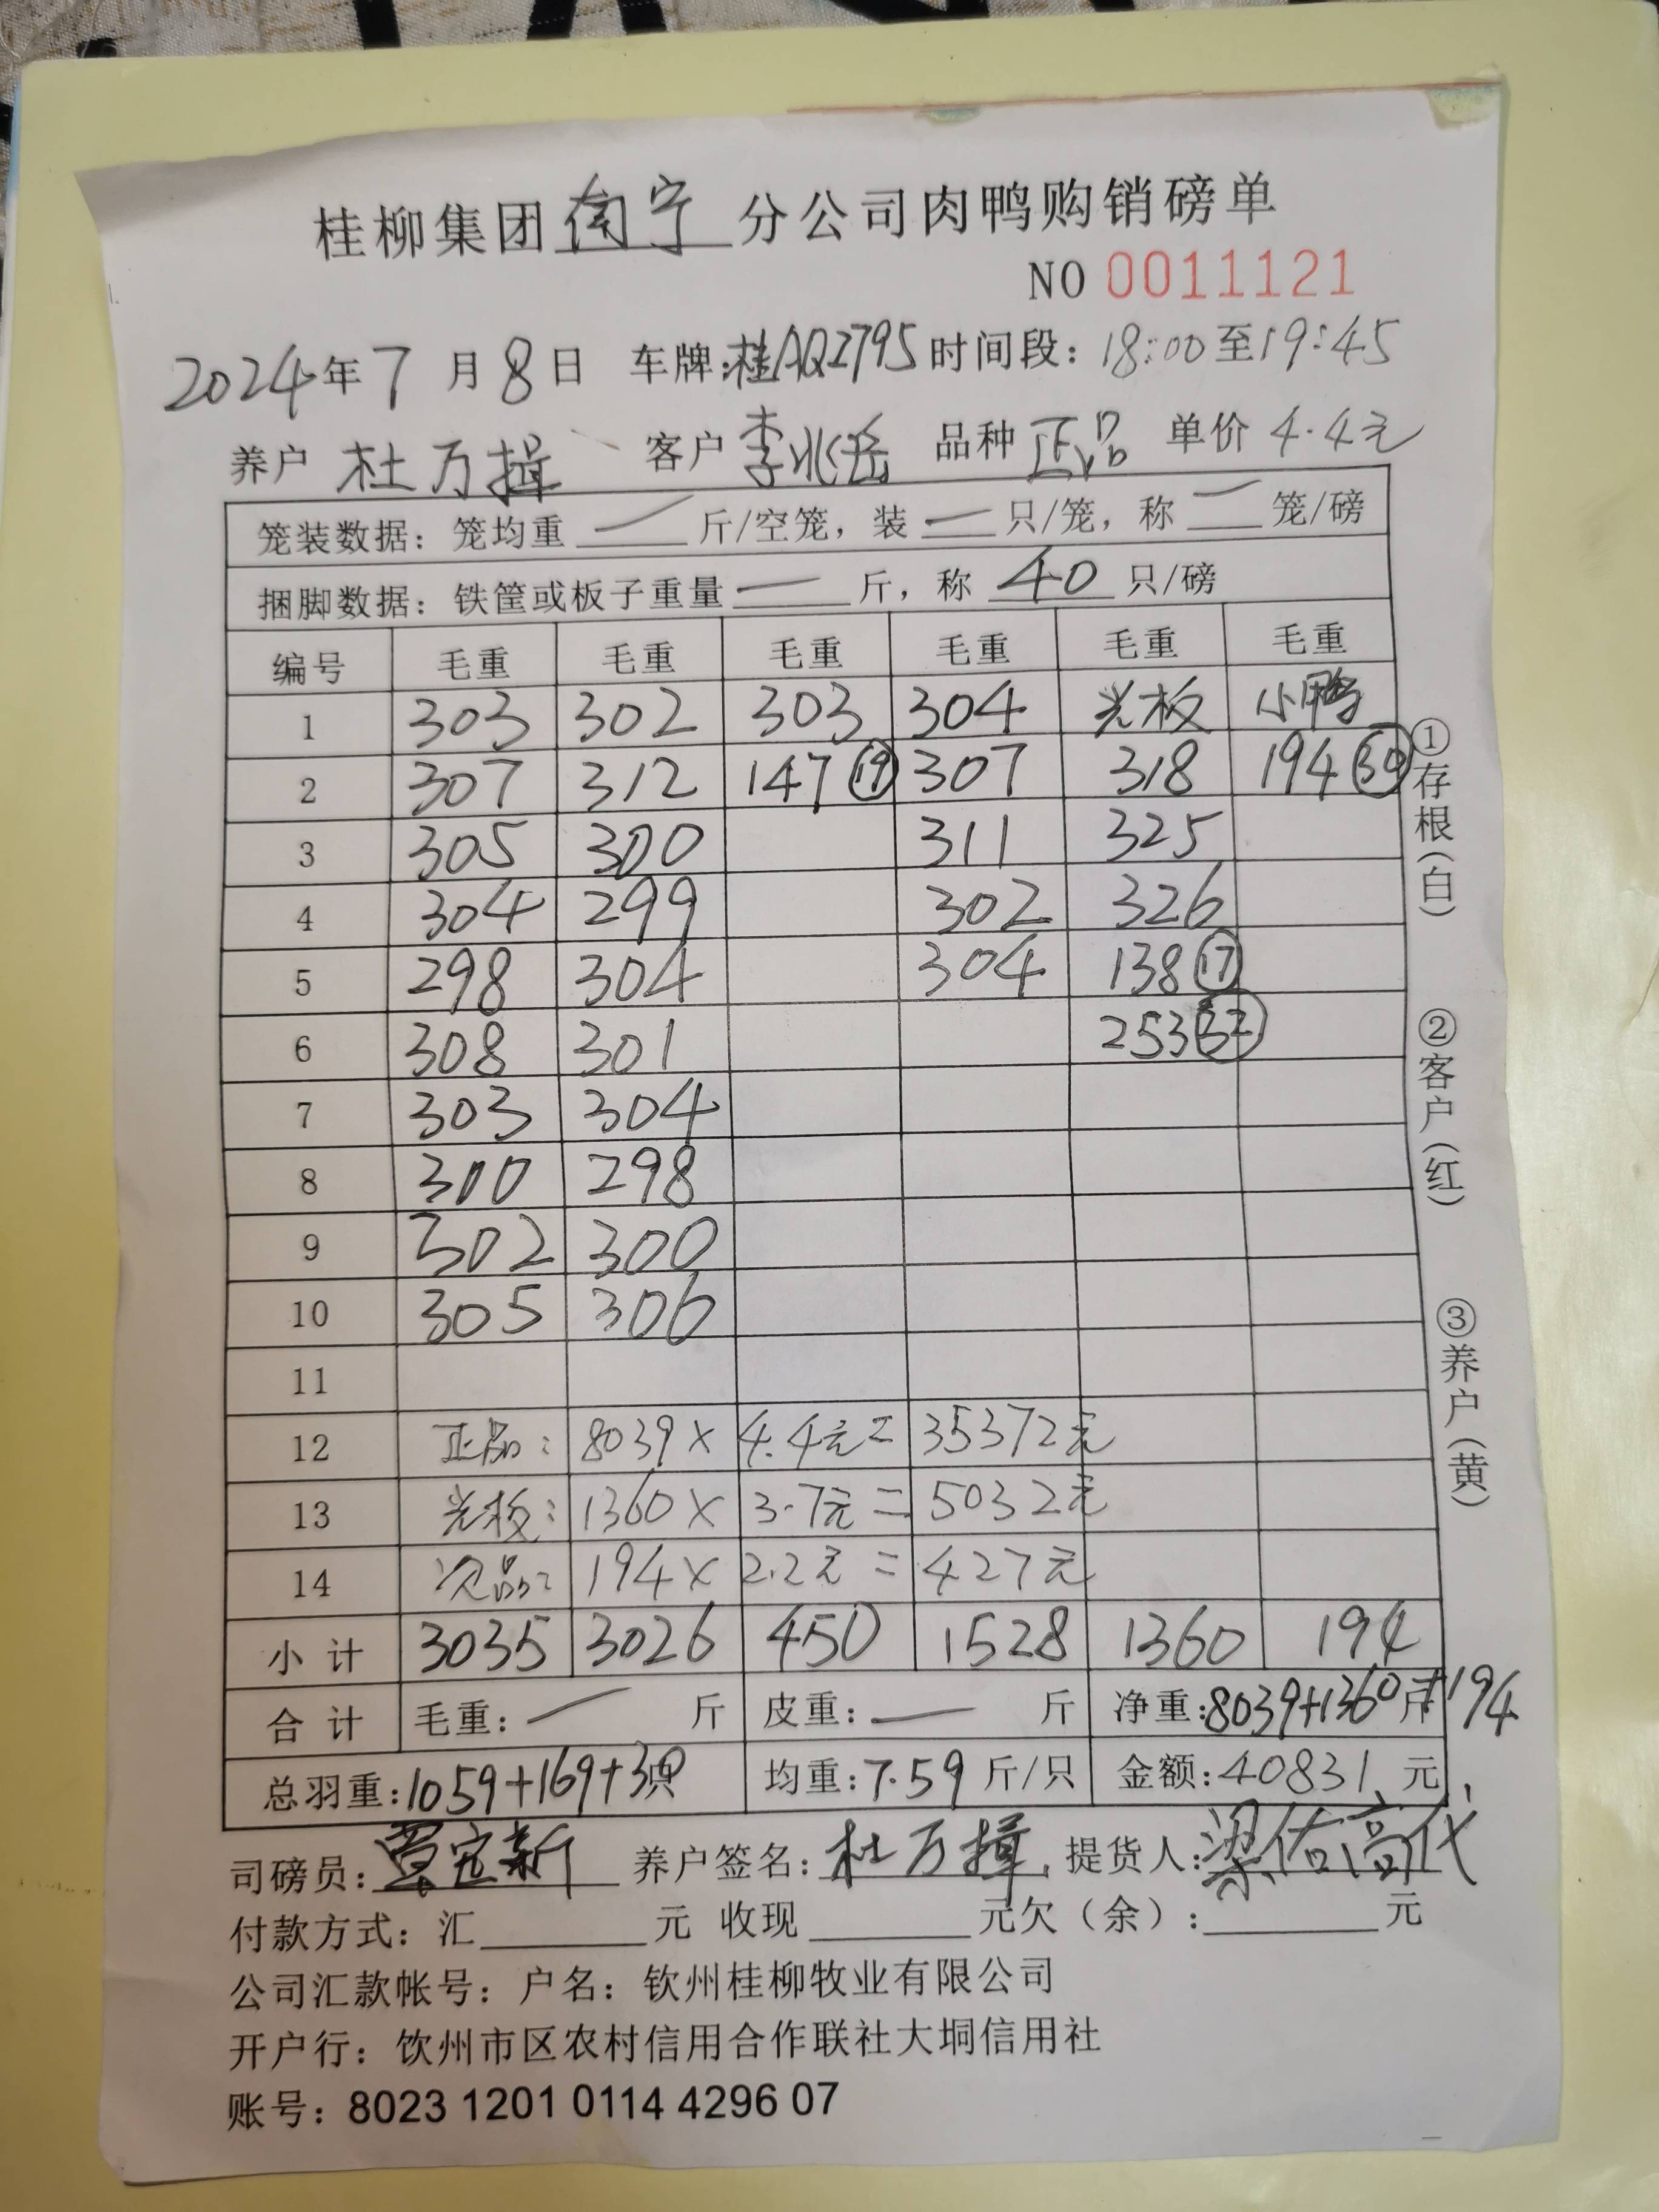 桂柳集团南宁分公司肉鸭购销磅单
NO 0011121
2024年7月8日 车牌:桂AQ2795 时间段：18:00至19:45
养户 杜万揖 客户 李兆岳 品种 正品 单价 4.4元
笼装数据：笼均重 一 斤/空笼，装 一 只/笼，称 一 笼/磅
捆脚数据：铁筐或板子重量 一 斤，称 40 只/磅
编号 毛重 毛重 毛重 毛重 毛重 毛重
1 303 302 303 304 光板 小鸭
2 307 312 147 ⑲ 307 318 194 ㉚
3 305 300 311 325
4 304 299 302 326
5 298 304 304 138 ⑰
6 308 301 253 ㉜
7 303 304
8 300 298
9 302 300
10 305 306
11
12 正品：8039×4.4元=35372元
13 光板：1360×3.7元=5032元
14 次品：194×2.2元=427元
小计 3035 3026 450 1528 1360 194
合计 毛重：一 斤 皮重：一 斤 净重:8039+1360斤+194
总羽重:1059+169+30只 均重:7.59斤/只 金额:40831元
司磅员: 养户签名:杜万揖 提货人:梁佑高代
付款方式：汇 元 收现 元欠（余）： 元
公司汇款帐号：户名：钦州桂柳牧业有限公司
开户行：饮州市区农村信用合作联社大垌信用社
账号：8023 1201 0114 4296 07
①存根（白）
②客户（红）
③养户（黄）